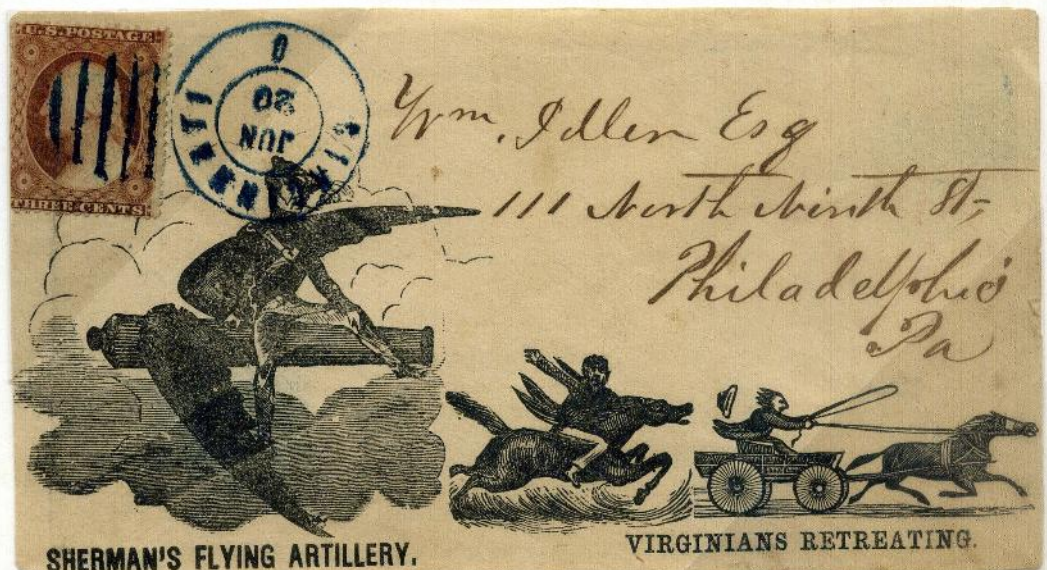 U.S. POSTAGE
THREE CENTS
CINCINNATI O
20
JUN
Wm. Idler Esq
111 North Ninth St,
Philadelphia
Pa
SHERMAN'S FLYING ARTILLERY.
VIRGINIANS RETREATING.